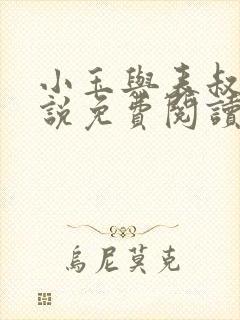 小玉與表叔
說免費閱讀
烏尼莫克